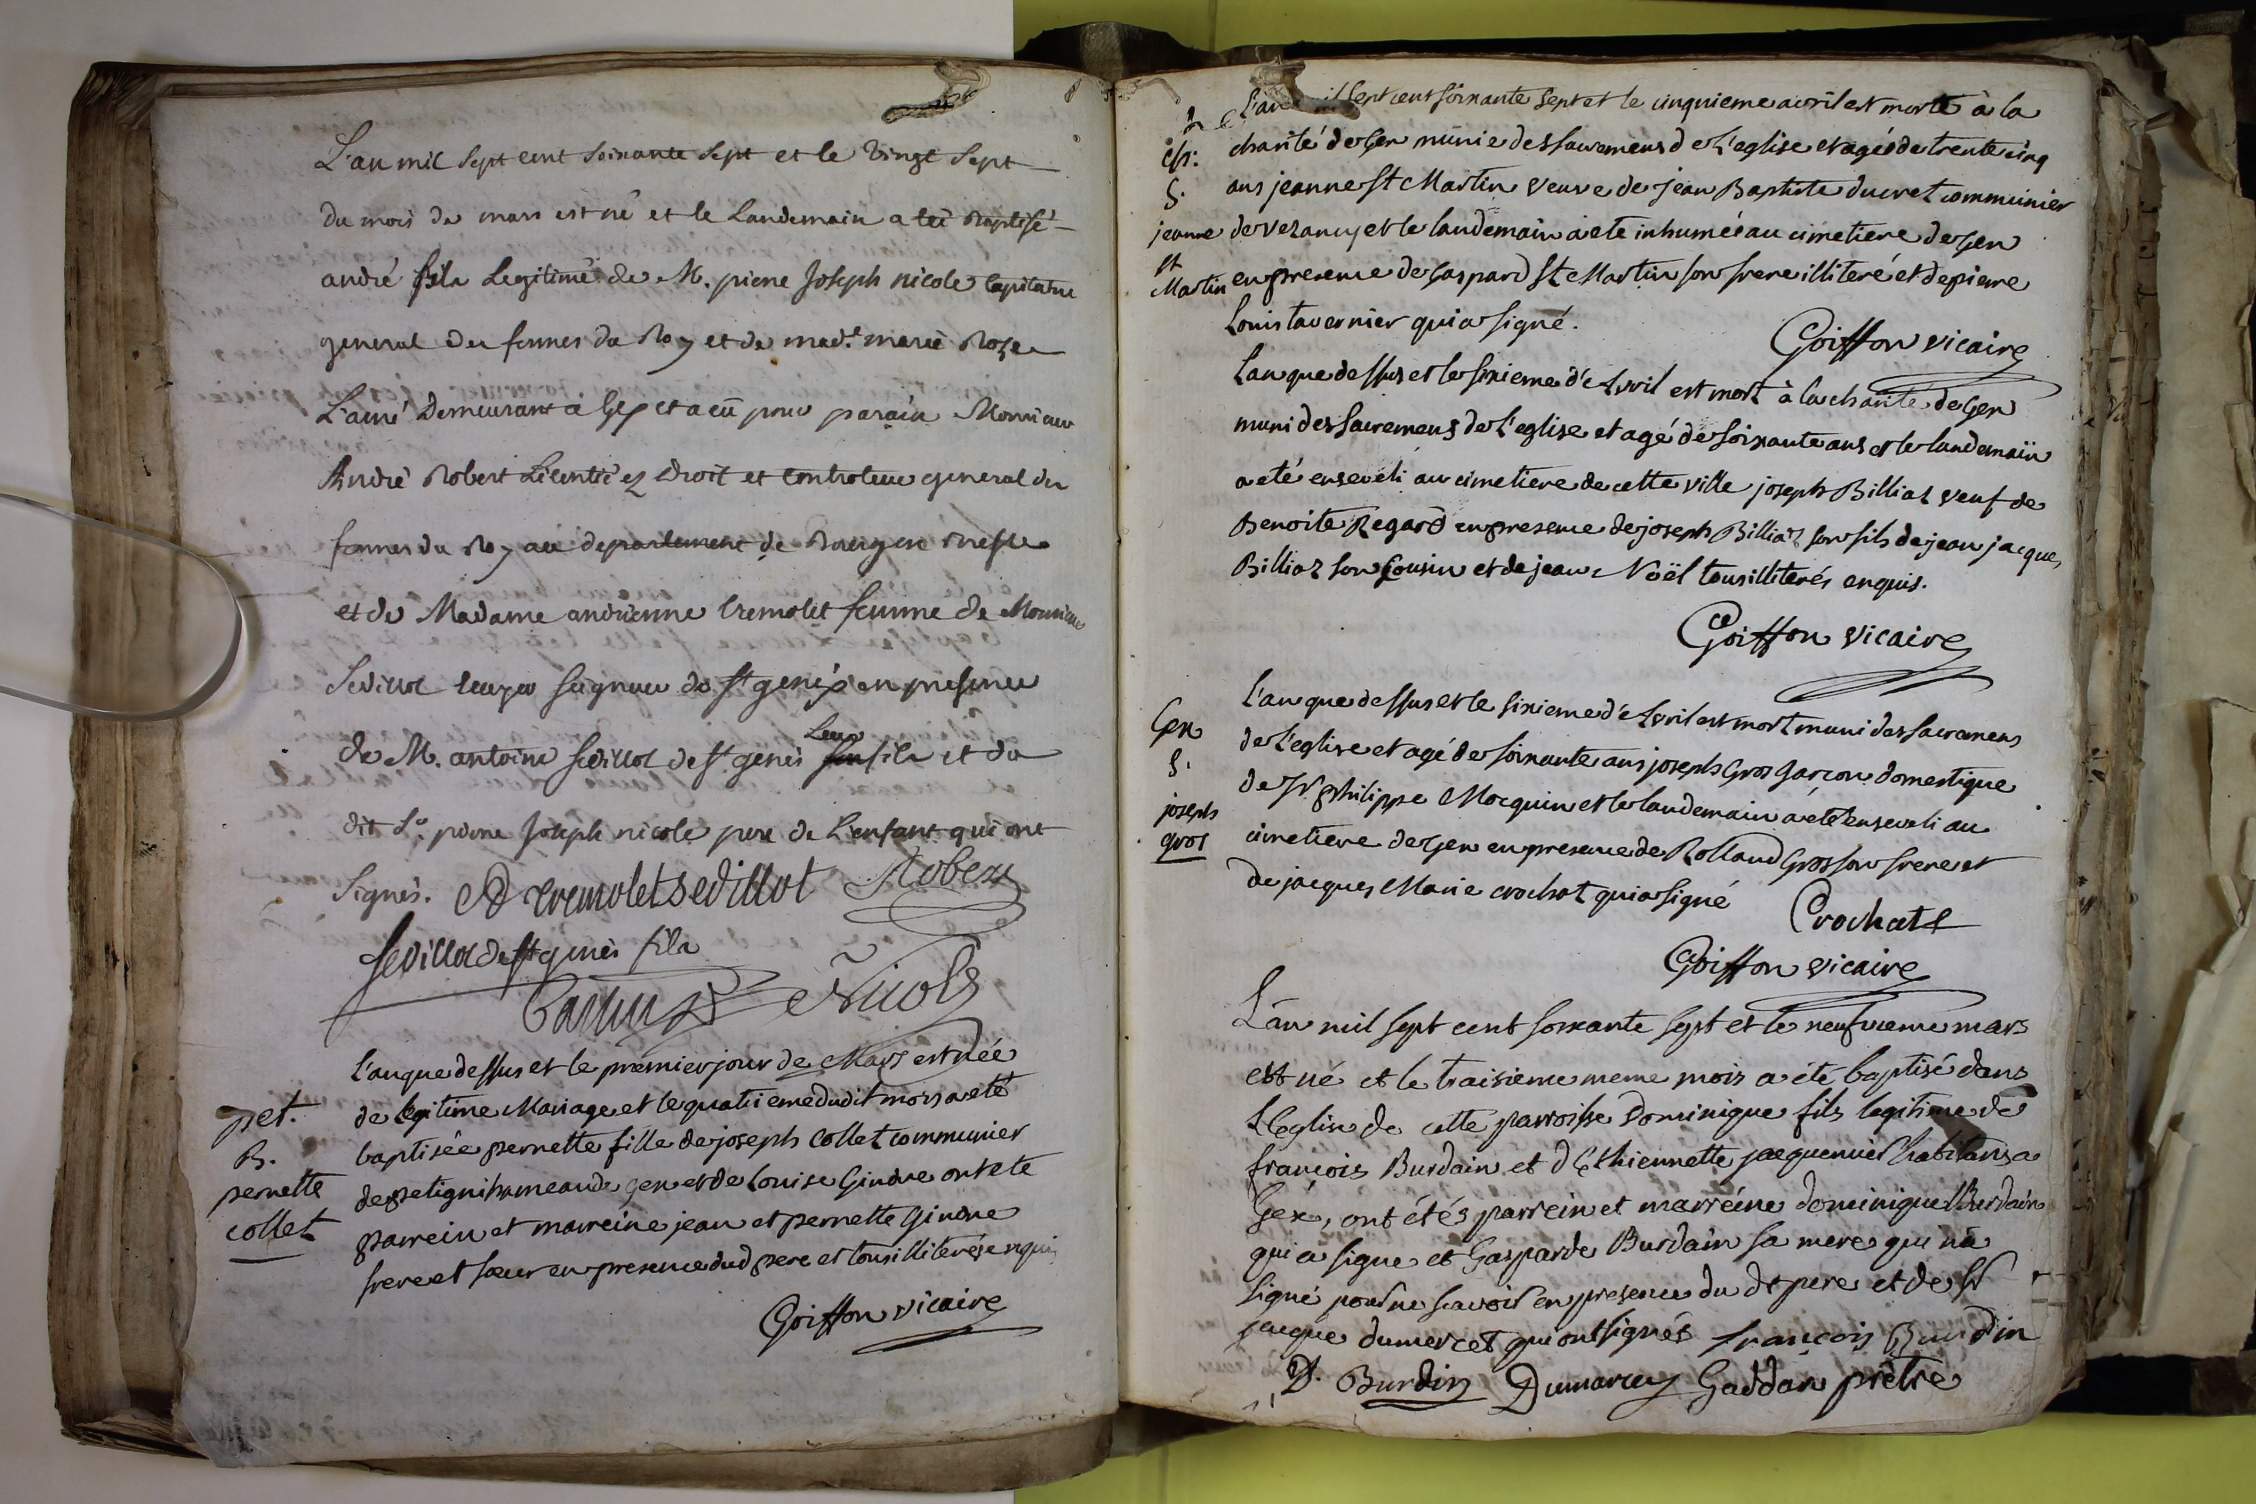 L'an mil sept cent soixante sept et le vingt sept
du mois de mars est né et le landemain a été Baptisé
andré fils Legitime de M. pierre Joseph nicole Capitaine
general des fermes du Roy et de mad.e marie Roze
L'ainé Demeurant à Gex et a eû pour parain Monsieur
André Robert Licentié ez Droit et Controleur general des
fermes du Roy au departement de Bourg en Bresse
et de Madame andrienne Cremolet femme de Monsieur
Sedillot seigneur de St genix en presence
de M. antoine Sedillot de St genis
Leur
fils et du
dit Sr. pierre Joseph nicole pere de L'enfant qui ont
Signés. A Cremolet Sedillot Robert
Sedillot de St genis fils
Nicole
pet.
B.
pernette
collet
l'an que dessus et le premier jour de Mars est née
de legitime Mariage et le quatrieme dudit mois a eté
baptisée pernette fille de joseph Collet communier
de petigni hameau de gex et de Louise Gindre ont ete
parrein et marreine jean et pernette Gindre
frere et soeur en presence dud pere et tous illiterés enquis
Goiffon vicaire
jeanne
St
Martin
L'an mil sept cent soixante sept et le cinquieme avril est morte à la
charité de Gex munie des sacremens de l'eglise et agée de trente cinq
ans jeanne St Martin veuve de jean Baptiste ducret communier
de vezancy et le landemain a eté inhumée au cimetiere de Gex
en presence de Gaspard St Martin son frere illiteré et de pierre
Louis tavernier qui a signé.
Goiffon vicaire
L'an que dessus et le sixieme d'Avril est mort à la charité de Gex
muni des sacremens de l'eglise et agé de soixante ans et le landemain
a eté enseveli au cimetiere de cette ville joseph Billiaz veuf de
Benoite Regard en presence de joseph Billiaz son fils de jean jacques
Billiaz son Cousin et de jean Noël tous illiterés enquis.
Goiffon vicaire
Gex
S.
joseph
gros
L'an que dessus et le sixieme d'Avril est mort muni des sacremens
de l'eglise et agé de soixante ans joseph Gros garçon domestique
de Sr philippe Mocquin et le landemain a eté enseveli au
cimetiere de Gex en presence de Rolland Gros son frere et
de jacques Marie crochat qui a signé
Crochat
Goiffon vicaire
L'an mil sept cent soixante sept et le neufvieme mars
est né et le traisieme meme mois a été baptisé dans
L'Eglise de cette parroisse Dominique fils legitime de
françois Burdain et d'Ethiennette jacquenier habitans a
Gex, ont étés parrein et marréine dominique Burdain
qui a signe et Gasparde Burdain sa mere qui n'a
signé pour ne scavoir en presence du dt pere et de Sr
jacque dumarcet qui ont signés françois Burdin
D. Burdin Dumarcey Gaddan prêtre